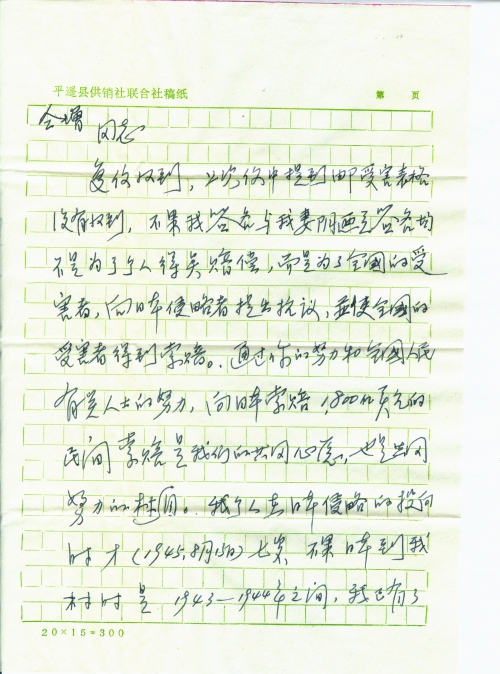 平遥县供销社联合社稿纸 第 页
会增 同志
复信收到，上次信中提到邮受害表格
没有收到，不果我签名与我妻阴通签名均
不是为了个人得美赔偿，而是为了全国的受
害者，向日本侵略者提出抗议，并使全国的
受害者得到索赔。通过你的努力和全国人民
有关人士的努力，向日本索赔1800亿美元的
民间索赔是我们的共同心愿，也是共同
努力的标目。我个人在日本侵略的投向
时才（1945.8月15日）七岁，不果日本到我
村时是1943—1944年之间，我已有了
20×15=300